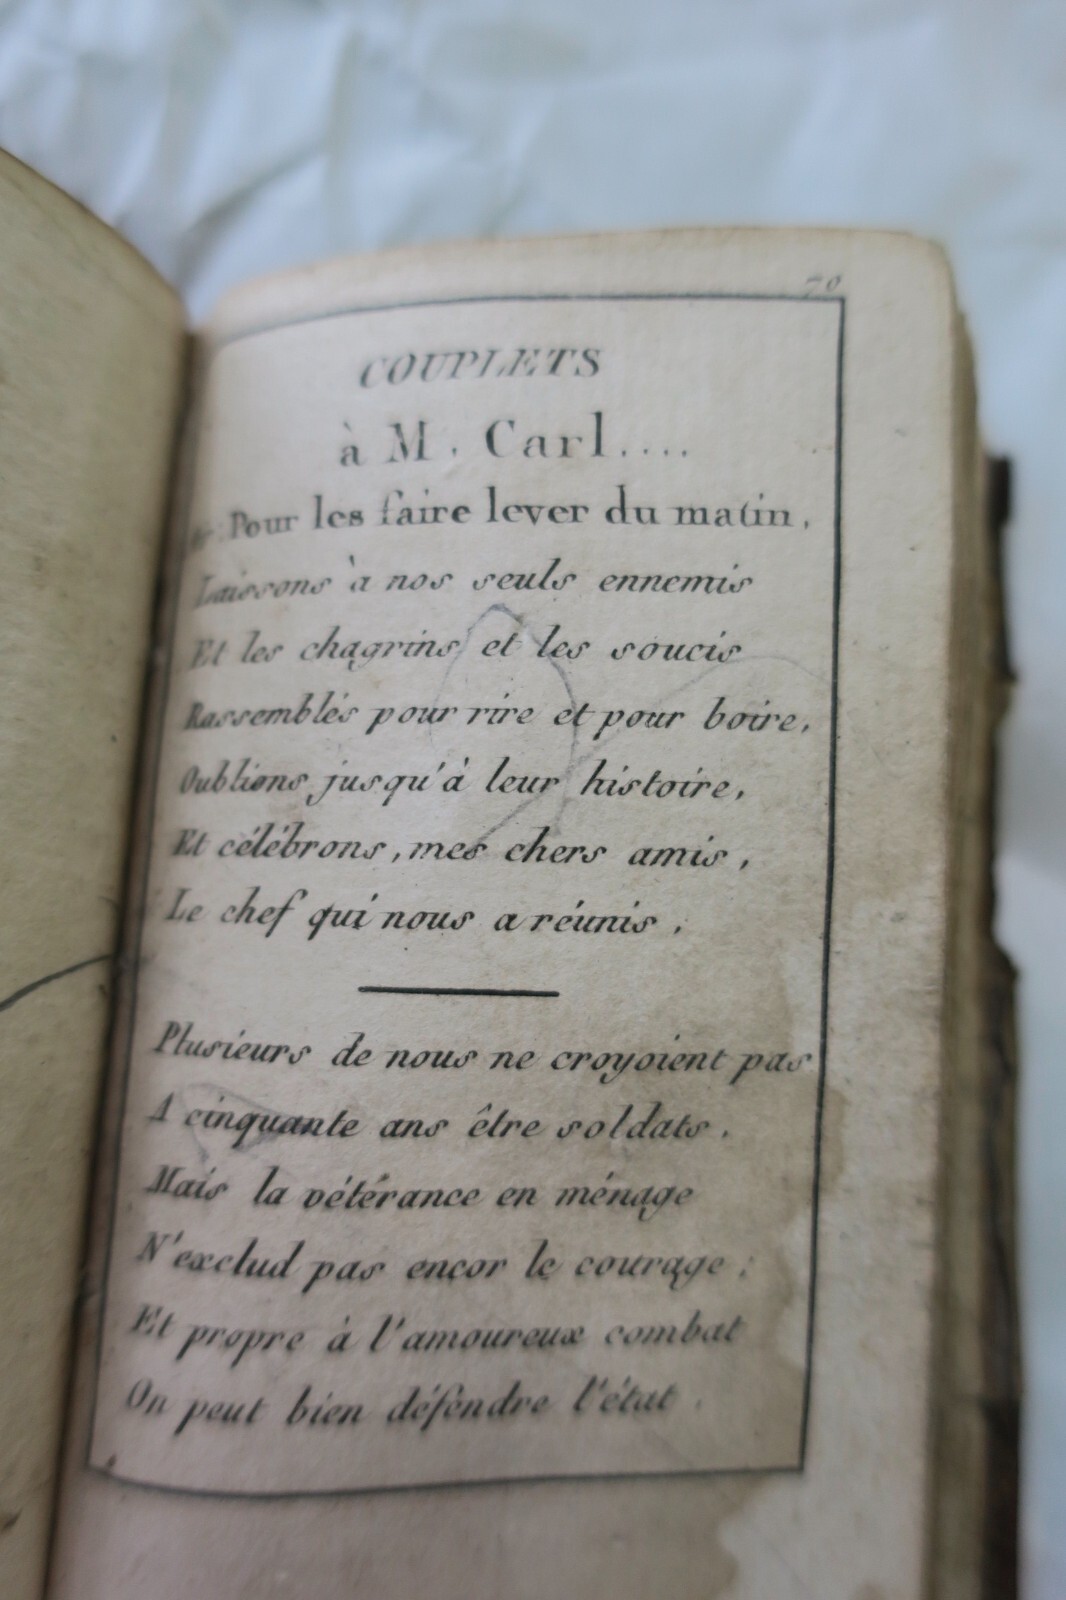 70
COUPLETS
à M. Carl....
Pour les faire lever du matin,
Laissons à nos seuls ennemis
Et les chagrins et les soucis
Rassemblés pour rire et pour boire,
Oublions jusqu'à leur histoire,
Et célébrons, mes chers amis,
Le chef qui nous a réunis,
Plusieurs de nous ne croyoient pas
A cinquante ans être soldats.
Mais la vétérance en ménage
N'exclud pas encor le courage:
Et propre à l'amoureux combat
On peut bien défendre l'état.